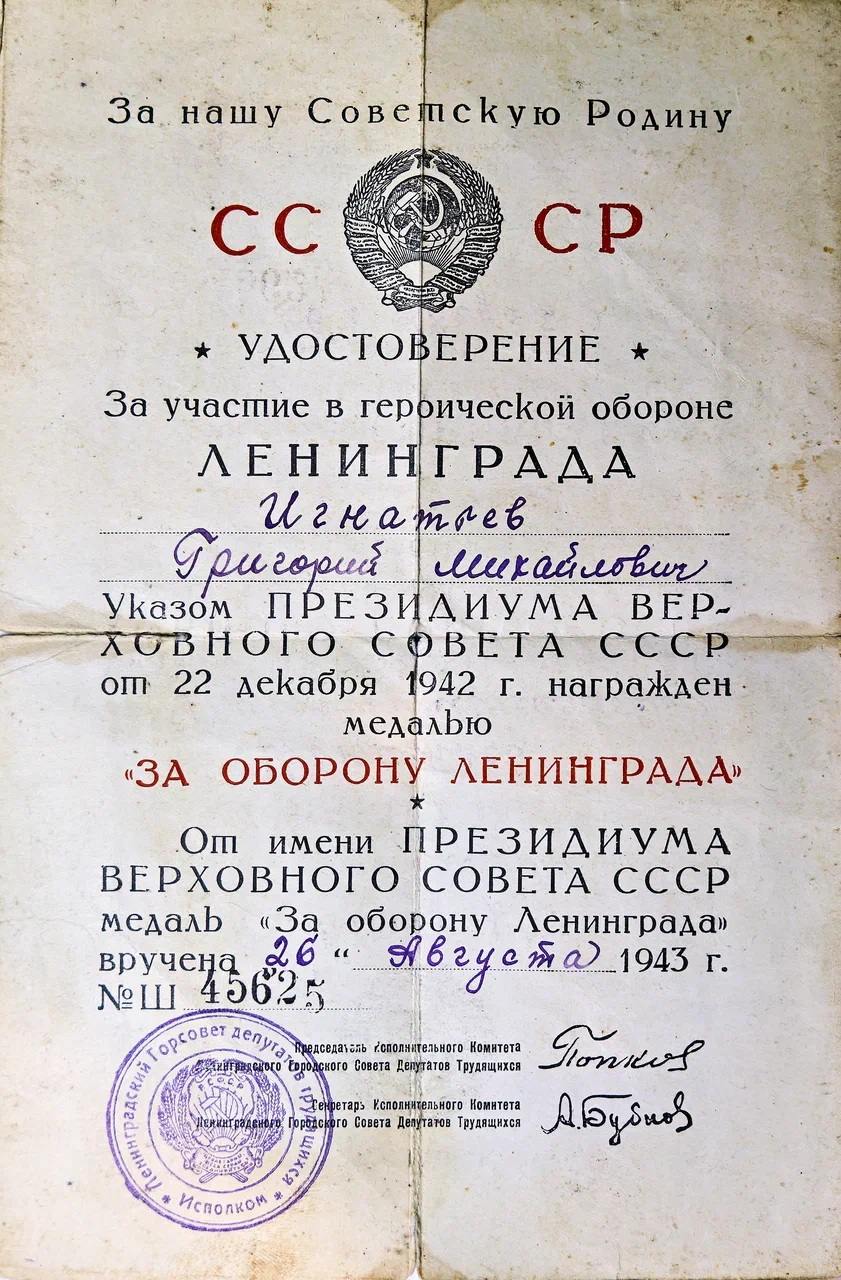 За нашу Советскую Родину
СССР
★ УДОСТОВЕРЕНИЕ ★
За участие в героической обороне
ЛЕНИНГРАДА
Игнатьев
Григорий Михайлович
Указом ПРЕЗИДИУМА ВЕР-
ХОВНОГО СОВЕТА СССР
от 22 декабря 1942 г. награжден
медалью
«ЗА ОБОРОНУ ЛЕНИНГРАДА»
★
От имени ПРЕЗИДИУМА
ВЕРХОВНОГО СОВЕТА СССР
медаль «За оборону Ленинграда»
вручена „26“ Августа 1943 г.
№ Ш 45625
Председатель Исполнительного Комитета
Ленинградского Городского Совета Депутатов Трудящихся
Попков
Секретарь Исполнительного Комитета
Ленинградского Городского Совета Депутатов Трудящихся
А. Бубнов
Ленинградский Горсовет депутатов трудящихся
★ Исполком ★